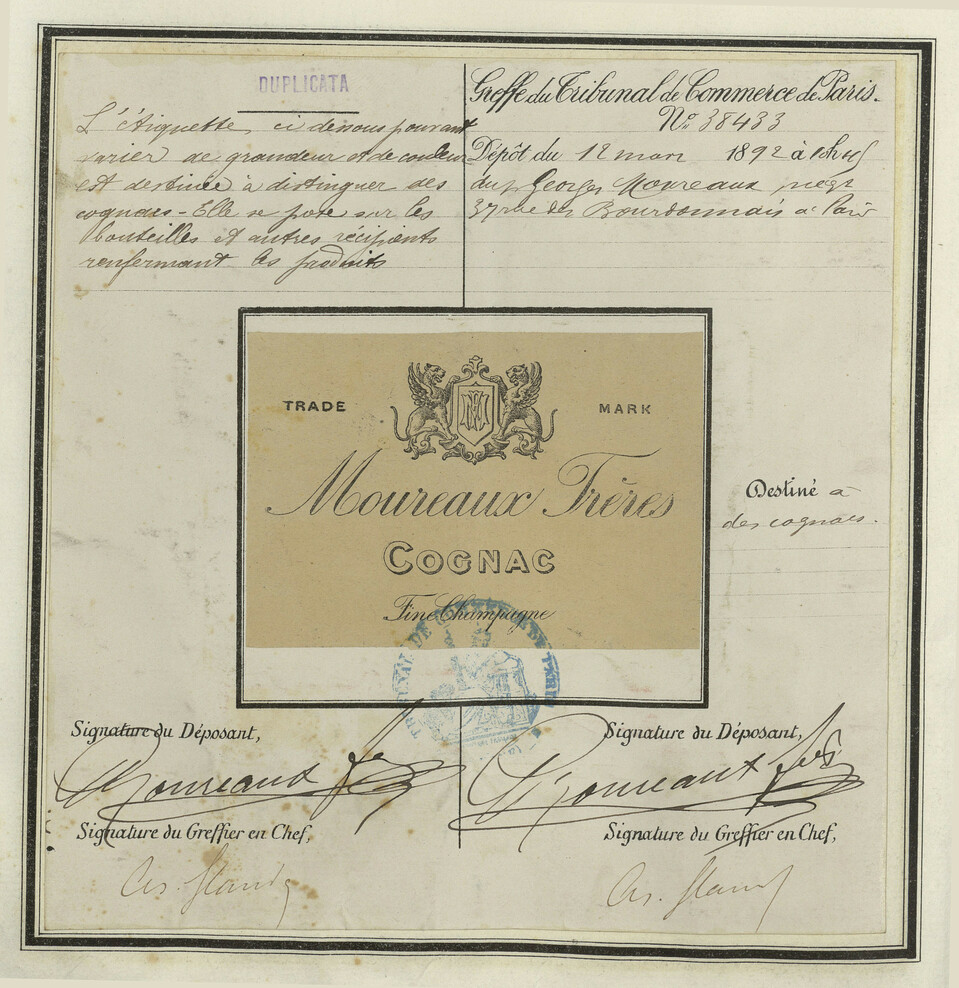 DUPLICATA
L'étiquette ci dessous pouvant
varier de grandeur et de couleur
est destinée à distinguer des
cognacs - Elle se pose sur les
bouteilles et autres récipients
renfermant les produits
Greffe du Tribunal de Commerce de Paris.
No 38433
Dépôt du 12 mars 1892 à
du Georges Moureaux négt
37 rue des Bourdonnais à Paris
TRADE MARK
Moureaux Frères
COGNAC
Fine Champagne
Destiné à
des cognacs.
TRIBUNAL DE COMMERCE DE PARIS
Signature du Déposant,
Moureaux
Signature du Greffier en Chef,
Signature du Déposant,
Moureaux
Signature du Greffier en Chef,